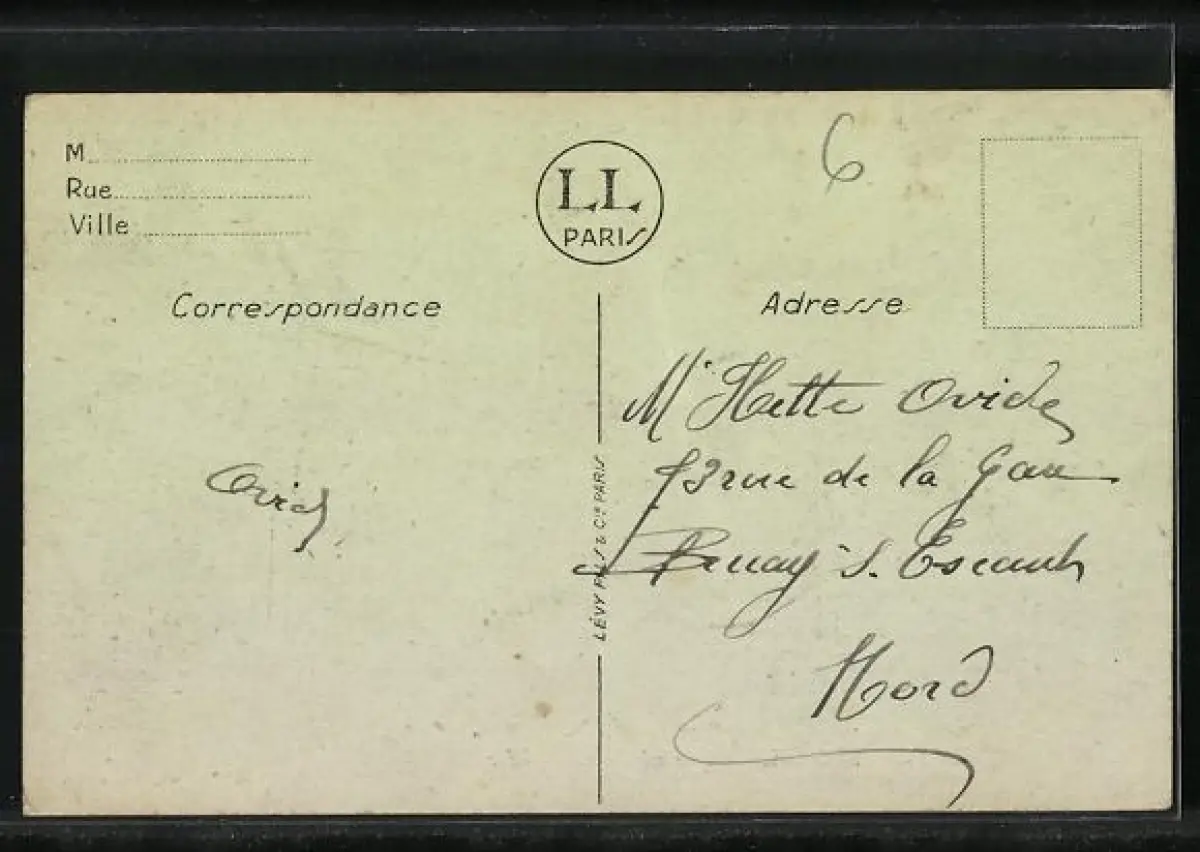 M
Rue
Ville
LL
PARIS
6
Correspondance
Adresse
Mr Hette Ovide
rue de la Gare
Bruay s. Escaut
Nord
Ovide
LÉVY FILS & Cie PARIS